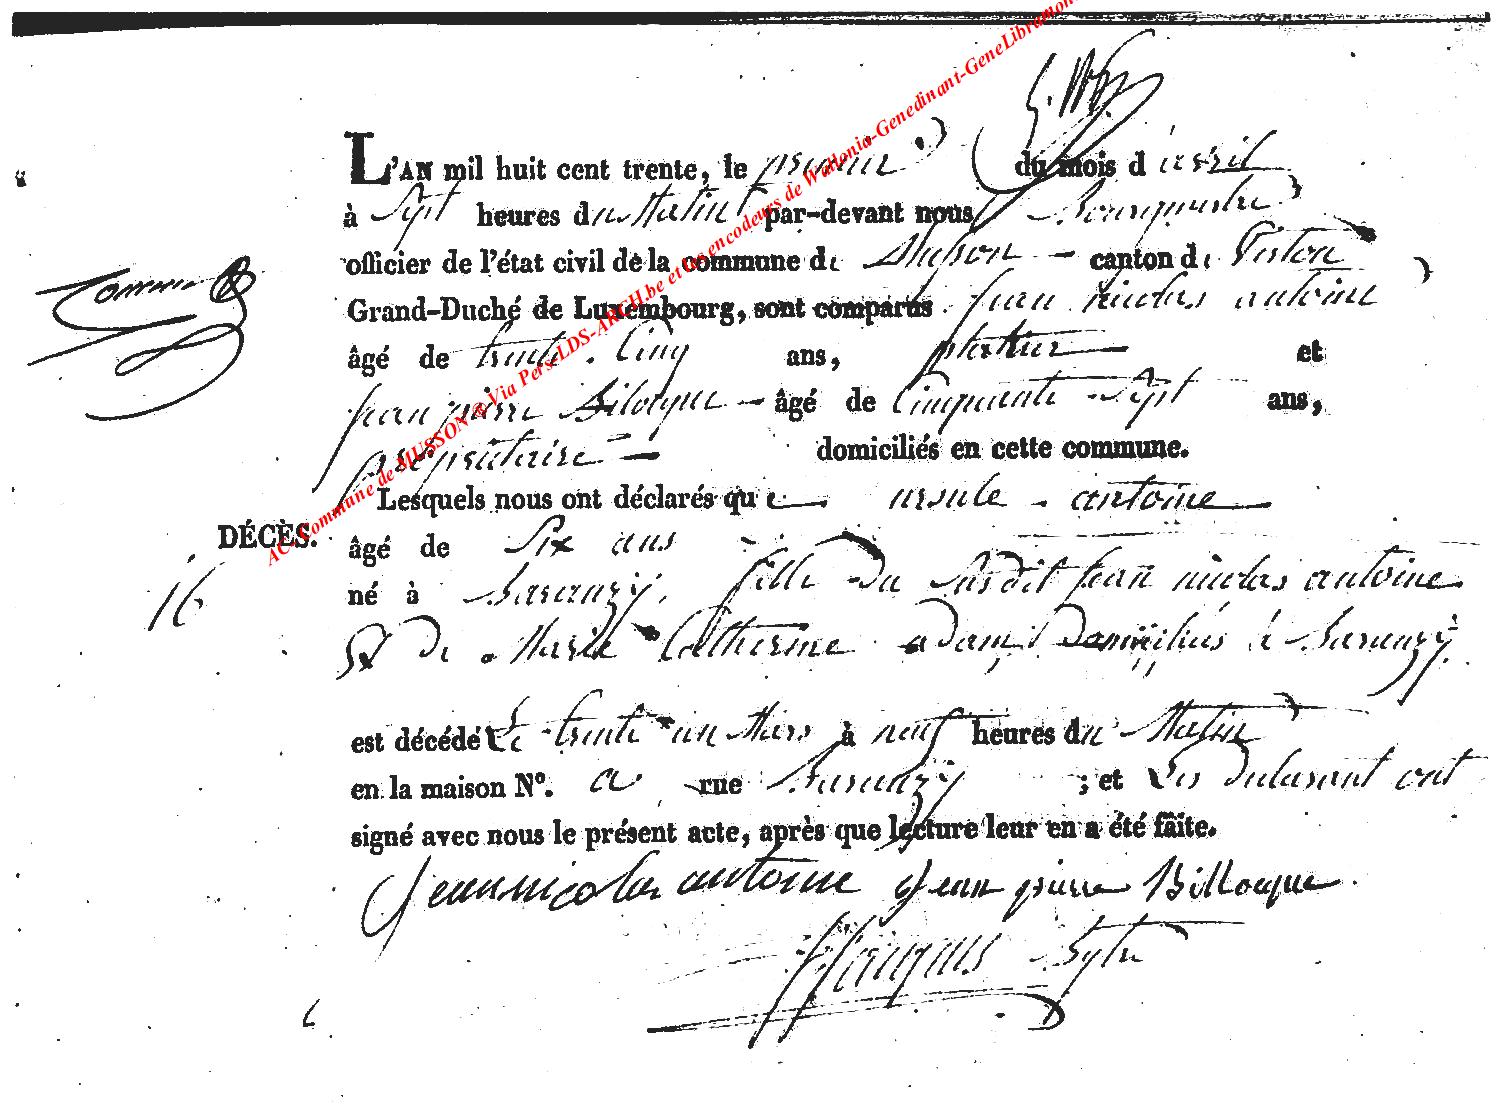 L'AN mil huit cent trente, le premier du mois d'avril
à Sept heures du Matin par-devant nous Bourguestre
officier de l'état civil de la commune de Musson canton de Virton
Grand-Duché de Luxembourg, sont comparus jean nicolas antoine
âgé de trente Cinq ans, platier et
jean pierre Bilocque âgé de Cinquante Sept ans,
propriétaire domiciliés en cette commune.
Lesquels nous ont déclarés que ursule antoine
DÉCÈS. âgé de Six ans
16 né à Baranzÿ, fille du Susdit jean nicolas antoine
Et de Marie Catherine adam, Domiciliés à Baranzÿ
est décédé Le trente un Mars à neuf heures du Matin
en la maison N°. a rue Baranzÿ ; et Les declarant ont
signé avec nous le présent acte, après que lecture leur en a été faite.
Jean nicolas antoine Jean pierre Billocque
AC-Commune de MUSSON ® Via Pers-LDS-ARCH.be et les encodeurs de Wallonia-Genedinant-GeneLibramon